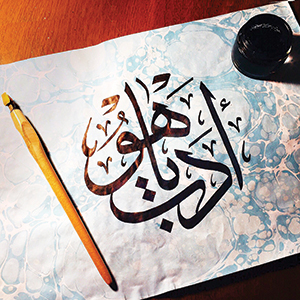 أدب يا هُو